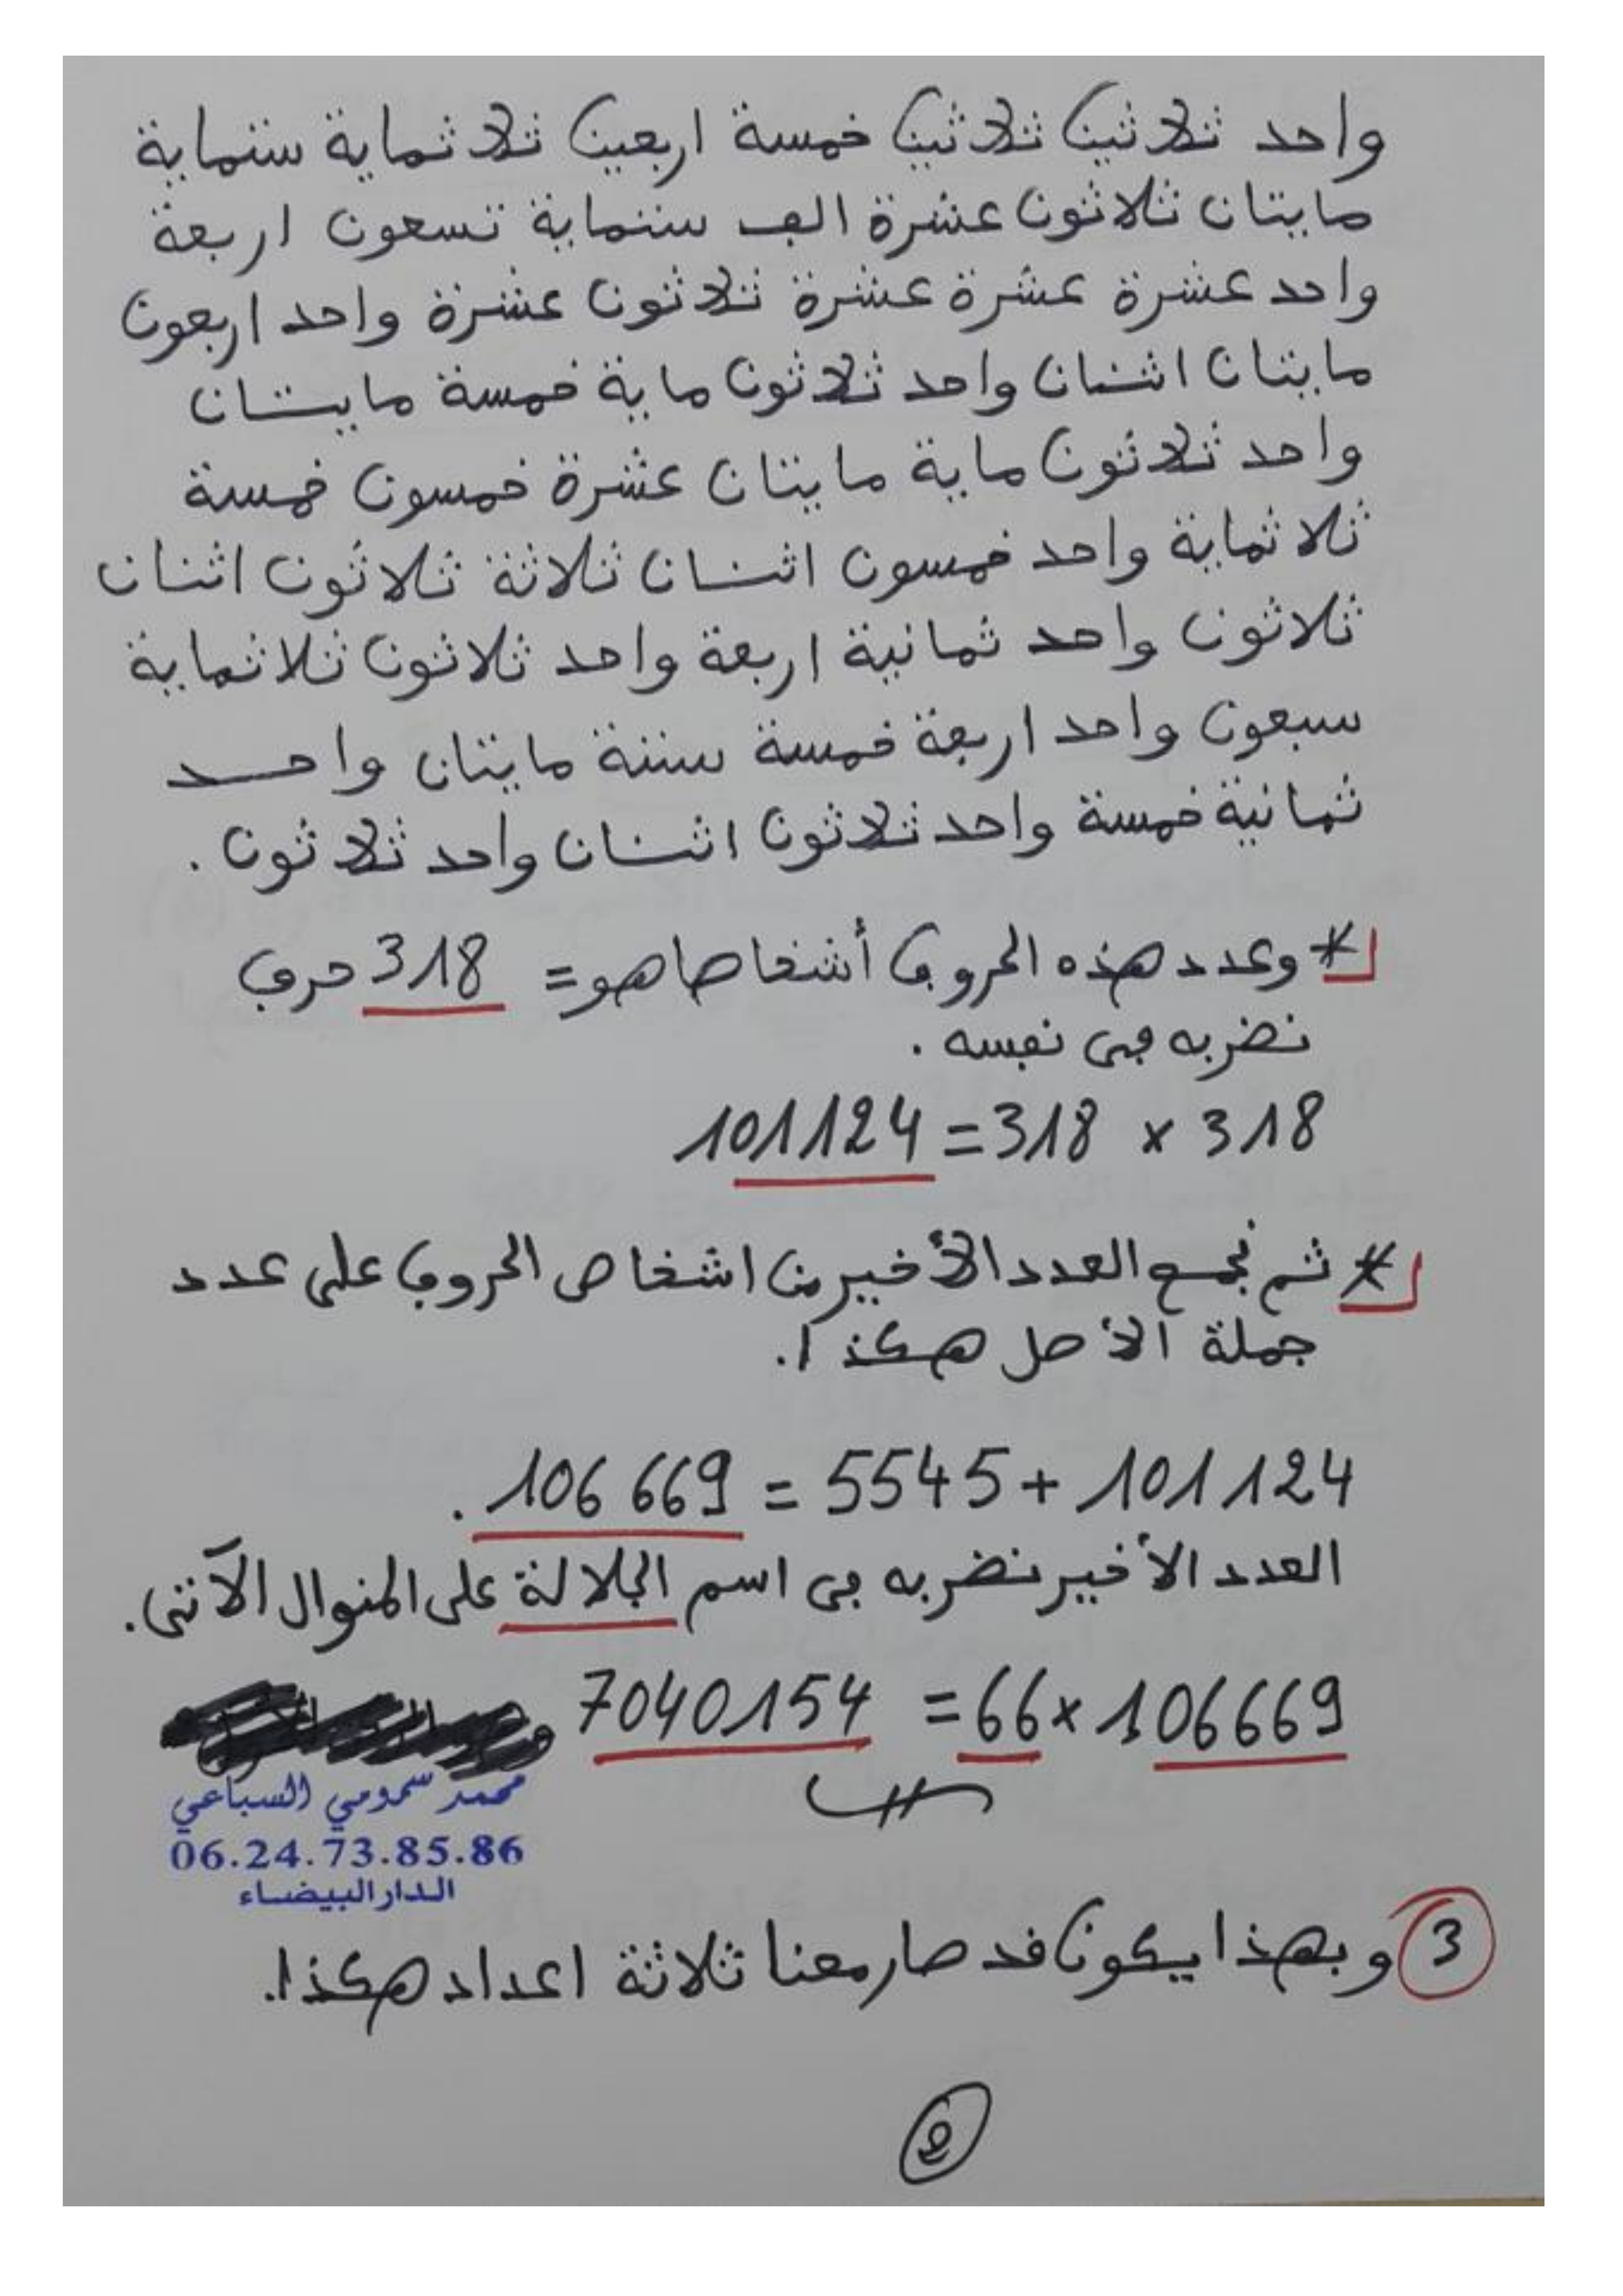 واحد ثلاثين ثلاثين خمسة اربعين ثلاثماية ستماية
مايتان ثلاثون عشرة الف ستماية تسعون اربعة
واحد عشرة عشرة عشرة ثلاثون عشرة واحد اربعون
مايتان اثنان واحد ثلاثون ماية خمسة مايتان
واحد ثلاثون ماية مايتان عشرة خمسون خمسة
ثلاثماية واحد خمسون اثنان ثلاثة ثلاثون اثنان
ثلاثون واحد ثمانية اربعة واحد ثلاثون ثلاثماية
سبعون واحد اربعة خمسة ستة مايتان واحد
ثمانية خمسة واحد ثلاثون اثنان واحد ثلاثون .
* وعدد هذه الحروف أشخاصا هو = 318 حرف
نضربه في نفسه .
318 × 318 = 101124
* ثم نجمع العدد الأخير من اشخاص الحروف على عدد
جملة الأصل هكذا .
101124 + 5545 = 106 669 .
العدد الأخير نضربه في اسم الجلالة على المنوال الآتي .
106669 × 66 = 7040154
محمد سمومي السباعي
06.24.73.85.86
الدار البيضاء
3 وبهذا يكون قد صار معنا ثلاثة اعداد هكذا .